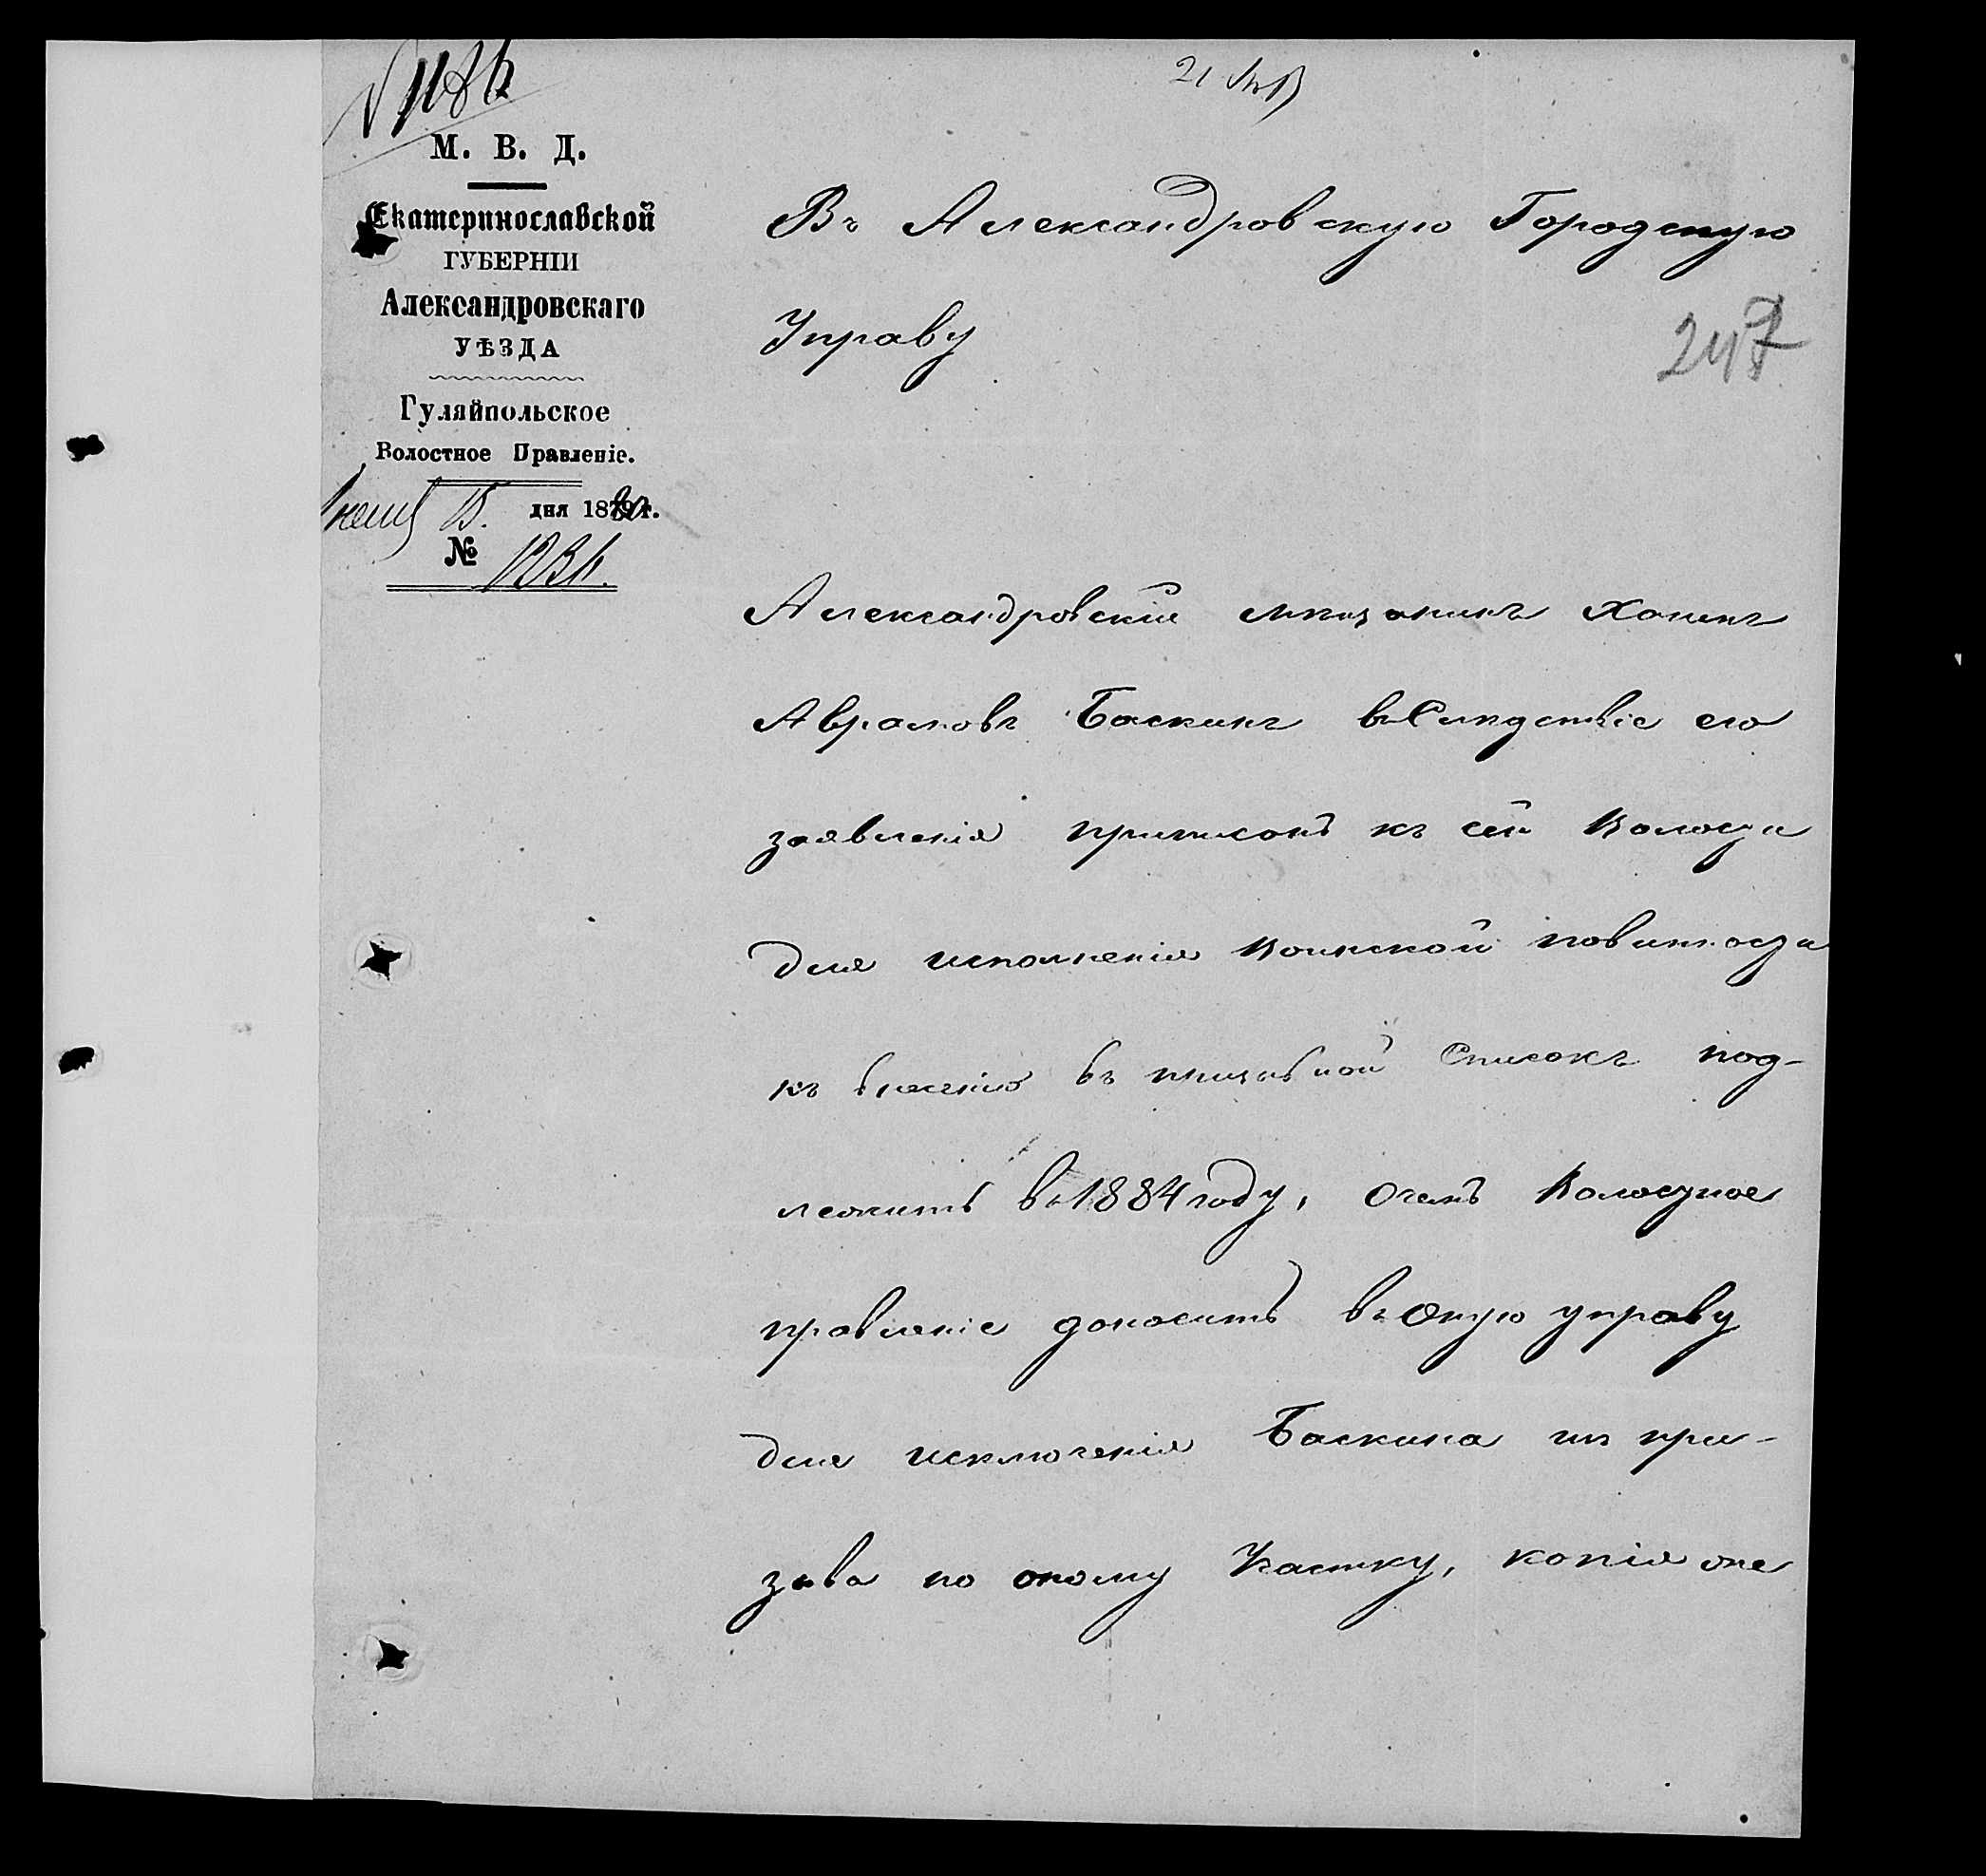 М. В. Д.
Екатеринославской
ГУБЕРНІИ
Александровскаго
УѢЗДА
Гуляйпольское
Волостное Правленіе.
15. дня 18 г.
№
247
Въ Александровскую Городскую
Управу
Александровскій мѣщанинъ Хаимъ
Аврамовъ Баскинъ въ Слѣдствіе его
заявленія приписанъ къ сей Волости
для исполненія Воинской повинности
къ внесенію въ призывной Списокъ под-
лежитъ въ 1884 году, О чемъ Волостное
правленіе доноситъ въ Оную управу
для исключенія Баскина изъ при-
зыва по оному Участку, копія